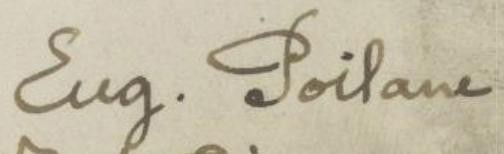 Eug. Poilane